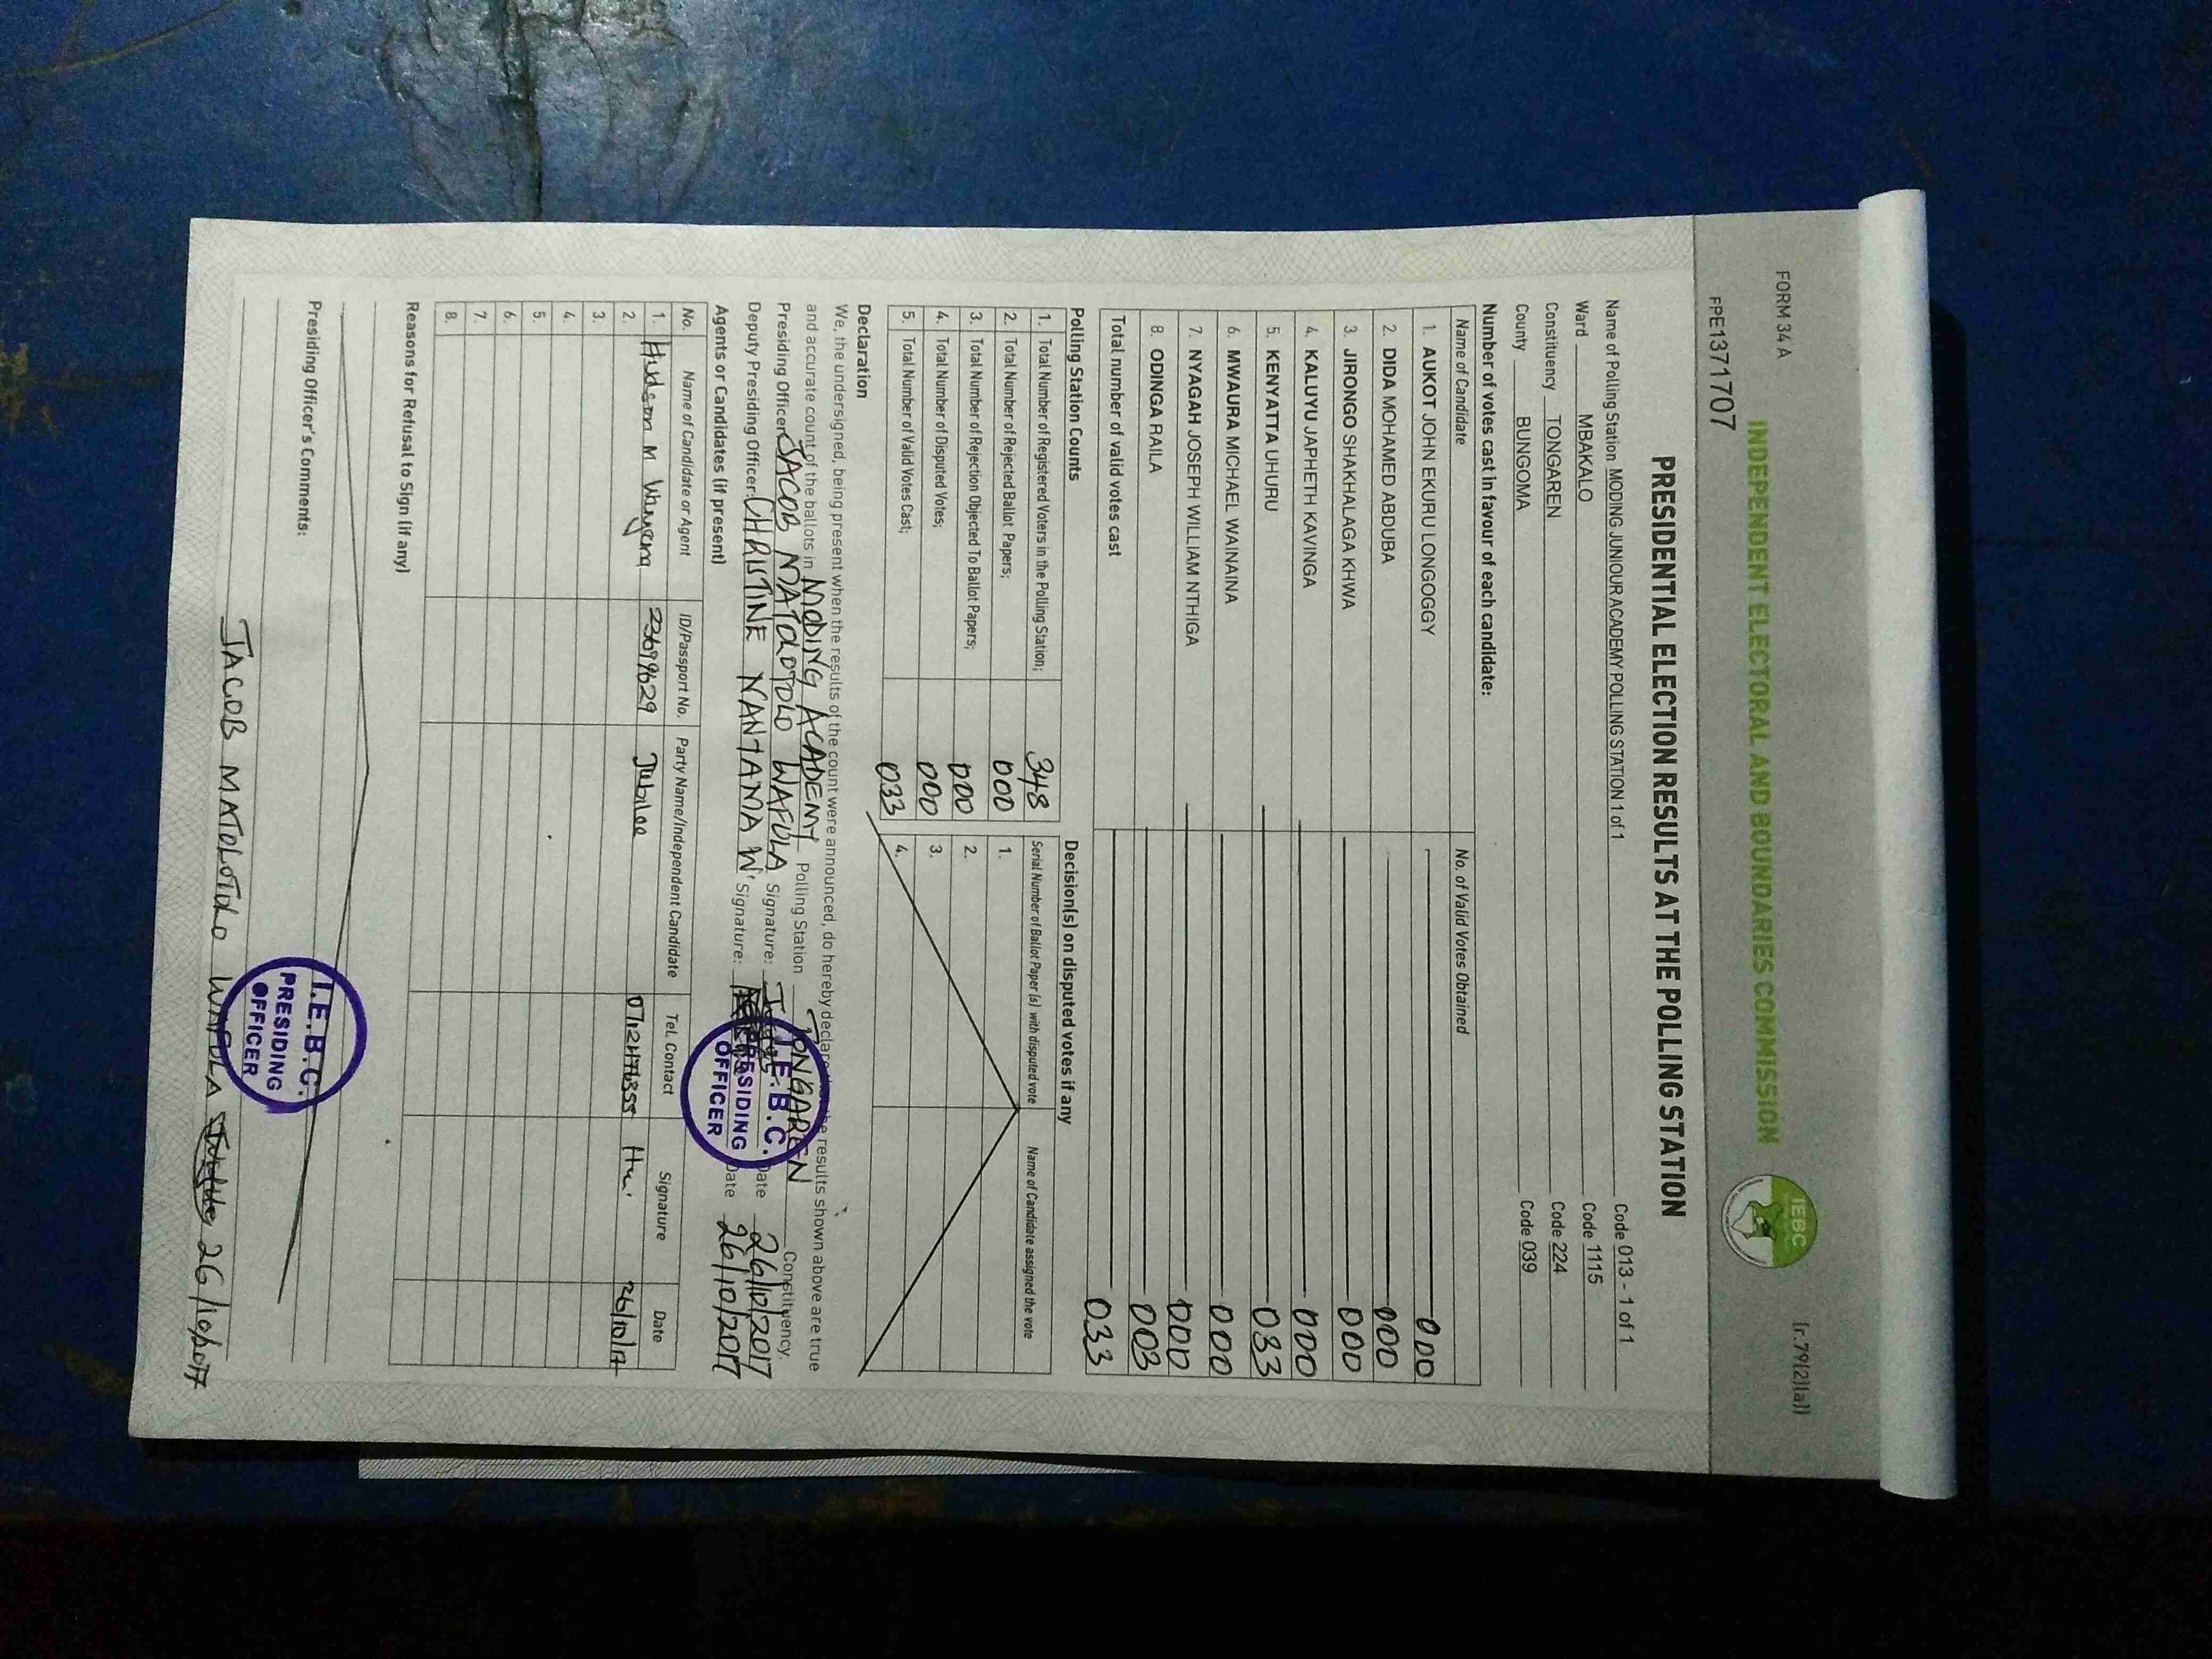 FORM 34 A
(r.79(2)(a))
INDEPENDENT ELECTORAL AND BOUNDARIES COMMISSION
IEBC
FPE1371707
PRESIDENTIAL ELECTION RESULTS AT THE POLLING STATION
Name of Polling Station MODING JUNIOUR ACADEMY POLLING STATION 1 of 1 Code 013 - 1 of 1
Ward MBAKALO Code 1115
Constituency TONGAREN Code 224
County BUNGOMA Code 039
Number of votes cast in favour of each candidate:
Name of Candidate No. of Valid Votes Obtained
1. AUKOT JOHN EKURU LONGOGGY 000
2. DIDA MOHAMED ABDUBA 000
3. JIRONGO SHAKHALAGA KHWA 000
4. KALUYU JAPHETH KAVINGA 000
5. KENYATTA UHURU 033
6. MWAURA MICHAEL WAINAINA 000
7. NYAGAH JOSEPH WILLIAM NTHIGA 000
8. ODINGA RAILA 003
Total number of valid votes cast 033
Polling Station Counts
1. Total Number of Registered Voters in the Polling Station; 348
2. Total Number of Rejected Ballot Papers; 000
3. Total Number of Rejection Objected To Ballot Papers; 000
4. Total Number of Disputed Votes; 000
5. Total Number of Valid Votes Cast; 033
Decision(s) on disputed votes if any
Serial Number of Ballot Paper (s) with disputed vote Name of Candidate assigned the vote
1.
2.
3.
4.
Declaration
We, the undersigned, being present when the results of the count were announced, do hereby declare the results shown above are true
and accurate count of the ballots in MODING ACADEMY Polling Station TONGAREN Constituency.
Presiding Officer JACOB MATOLOTOLO WAFULA Signature: Date 26/10/2017
Deputy Presiding Officer: CHRISTINE NANJAMA W. Signature: Date 26/10/2017
I.E.B.C.
PRESIDING
OFFICER
Agents or Candidates (if present)
No. Name of Candidate or Agent ID/Passport No. Party Name/Independent Candidate Tel. Contact Signature Date
1. Hudson M Wanyama 23699629 Jubilee 0712476355 26/10/17
2.
3.
4.
5.
6.
7.
8.
Reasons for Refusal to Sign (if any)
Presiding Officer's Comments:
I.E.B.C.
PRESIDING
OFFICER
JACOB MATOLOTOLO WAFULA 26/10/2017